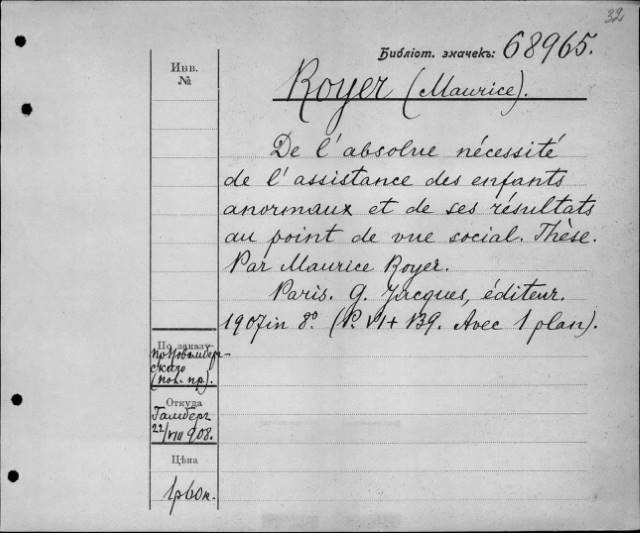 32
Библіот. значекъ: 68965.
Инв.
№
Royer (Maurice).
De l'absolue nécessité
de l'assistance des enfants
anormaux et de ses résultats
au point de vue social. Thèse.
Par Maurice Royer.
Paris. G. Jacques, éditeur.
1907 in 8° (P. VI + 139. Avec 1 plan).
По заказу
пр. Новомберг-
скаго
(пол. пр).
Откуда
Гамберг
22/VIII 908.
Цѣна
1р60к.